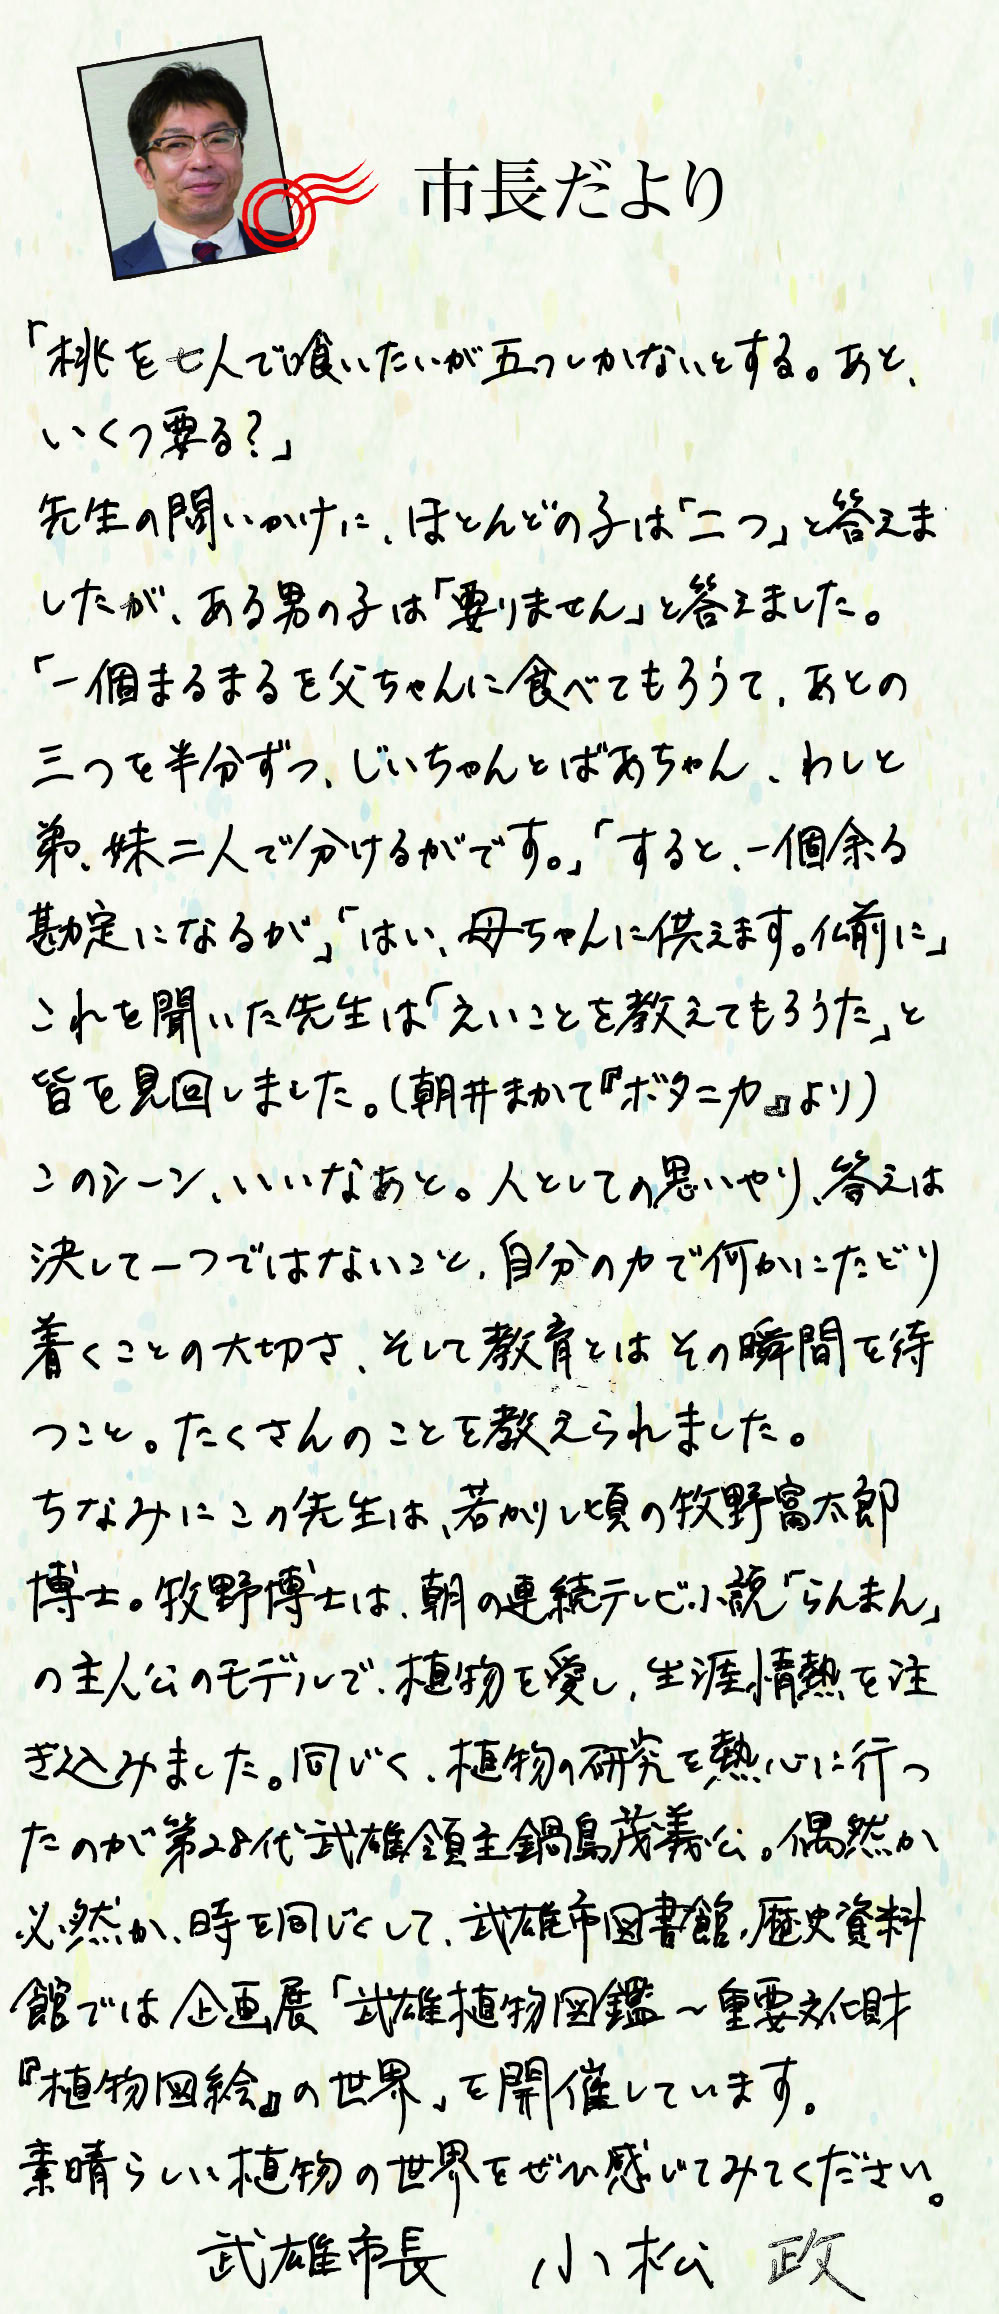 市長だより
「桃を七人で喰いたいが五つしかないとする。あと、
いくつ要る?」
先生の問いかけに、ほとんどの子は「二つ」と答えま
したが、ある男の子は「要りません」と答えました。
「一個まるまるを父ちゃんに食べてもろうて、あとの
三つを半分ずつ、じいちゃんとばあちゃん、わしと
弟、妹二人で分けるがです。」「すると、一個余る
勘定になるが」「はい、母ちゃんに供えます。仏前に」
これを聞いた先生は「えいことを教えてもろうた」と
皆を見回しました。(朝井まかて『ボタニカ』より)
このシーン、いいなあと。人としての思いやり、答えは
決して一つではないこと、自分の力で何かにたどり
着くことの大切さ、そして教育とはその瞬間を待
つこと。たくさんのことを教えられました。
ちなみにこの先生は、若かりし頃の牧野富太郎
博士。牧野博士は、朝の連続テレビ小説「らんまん」
の主人公のモデルで、植物を愛し、生涯情熱を注
ぎ込みました。同じく、植物の研究を熱心に行っ
たのが第28代武雄領主鍋島茂義公。偶然か
必然か、時を同じくして、武雄市図書館・歴史資料
館では企画展「武雄植物図鑑〜重要文化財
『植物図絵』の世界」を開催しています。
素晴らしい植物の世界をぜひ感じてみてください。
武雄市長 小松 政